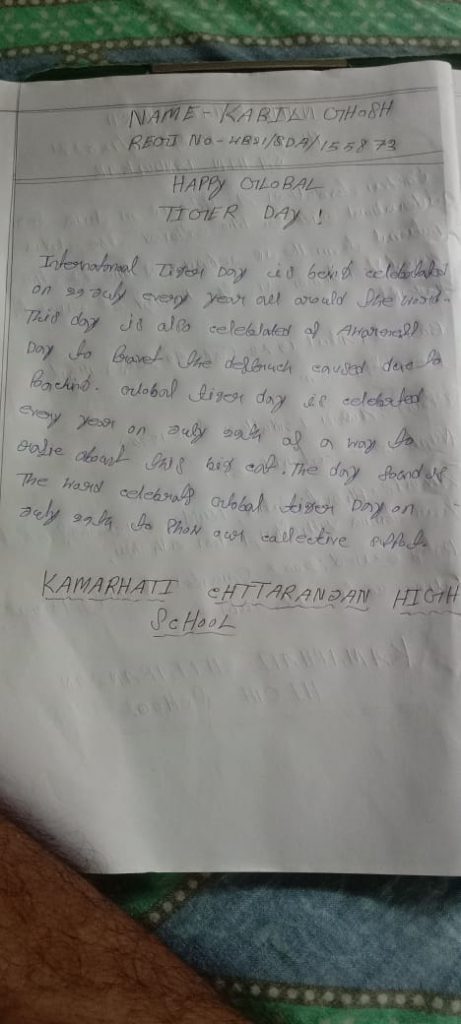 NAME - KABIL GHOSH
REGI NO - WB21/SDA/155873
HAPPY GLOBAL
TIGER DAY !
International Tiger Day is being celebrated
on 29 July every year all around the world.
This day is also celeblated as
Day to the caused due to
Poaching. Global tiger day is celebrated
every year on July 29th as a way to
about this big cat. The day
The world Global tiger Day on
July 29th to our collective effort.
KAMARHATI CHTTARANJAN HIGH
SCHOOL